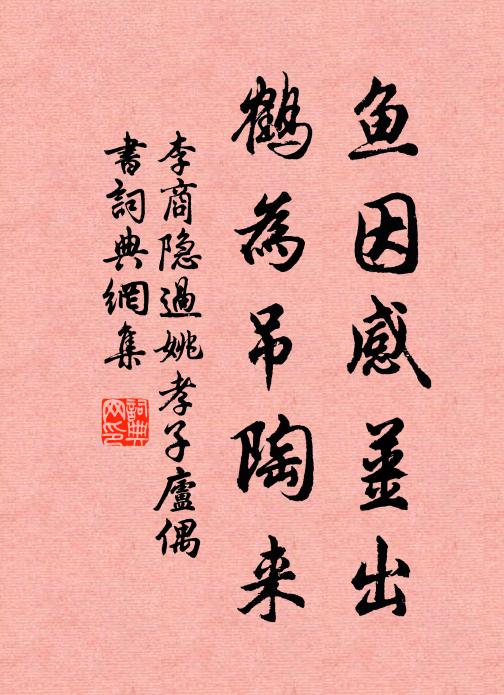 鱼因感姜出
鹤为吊陶来
李商隐过姚孝子廬偶
書詞典網集
詞典网印